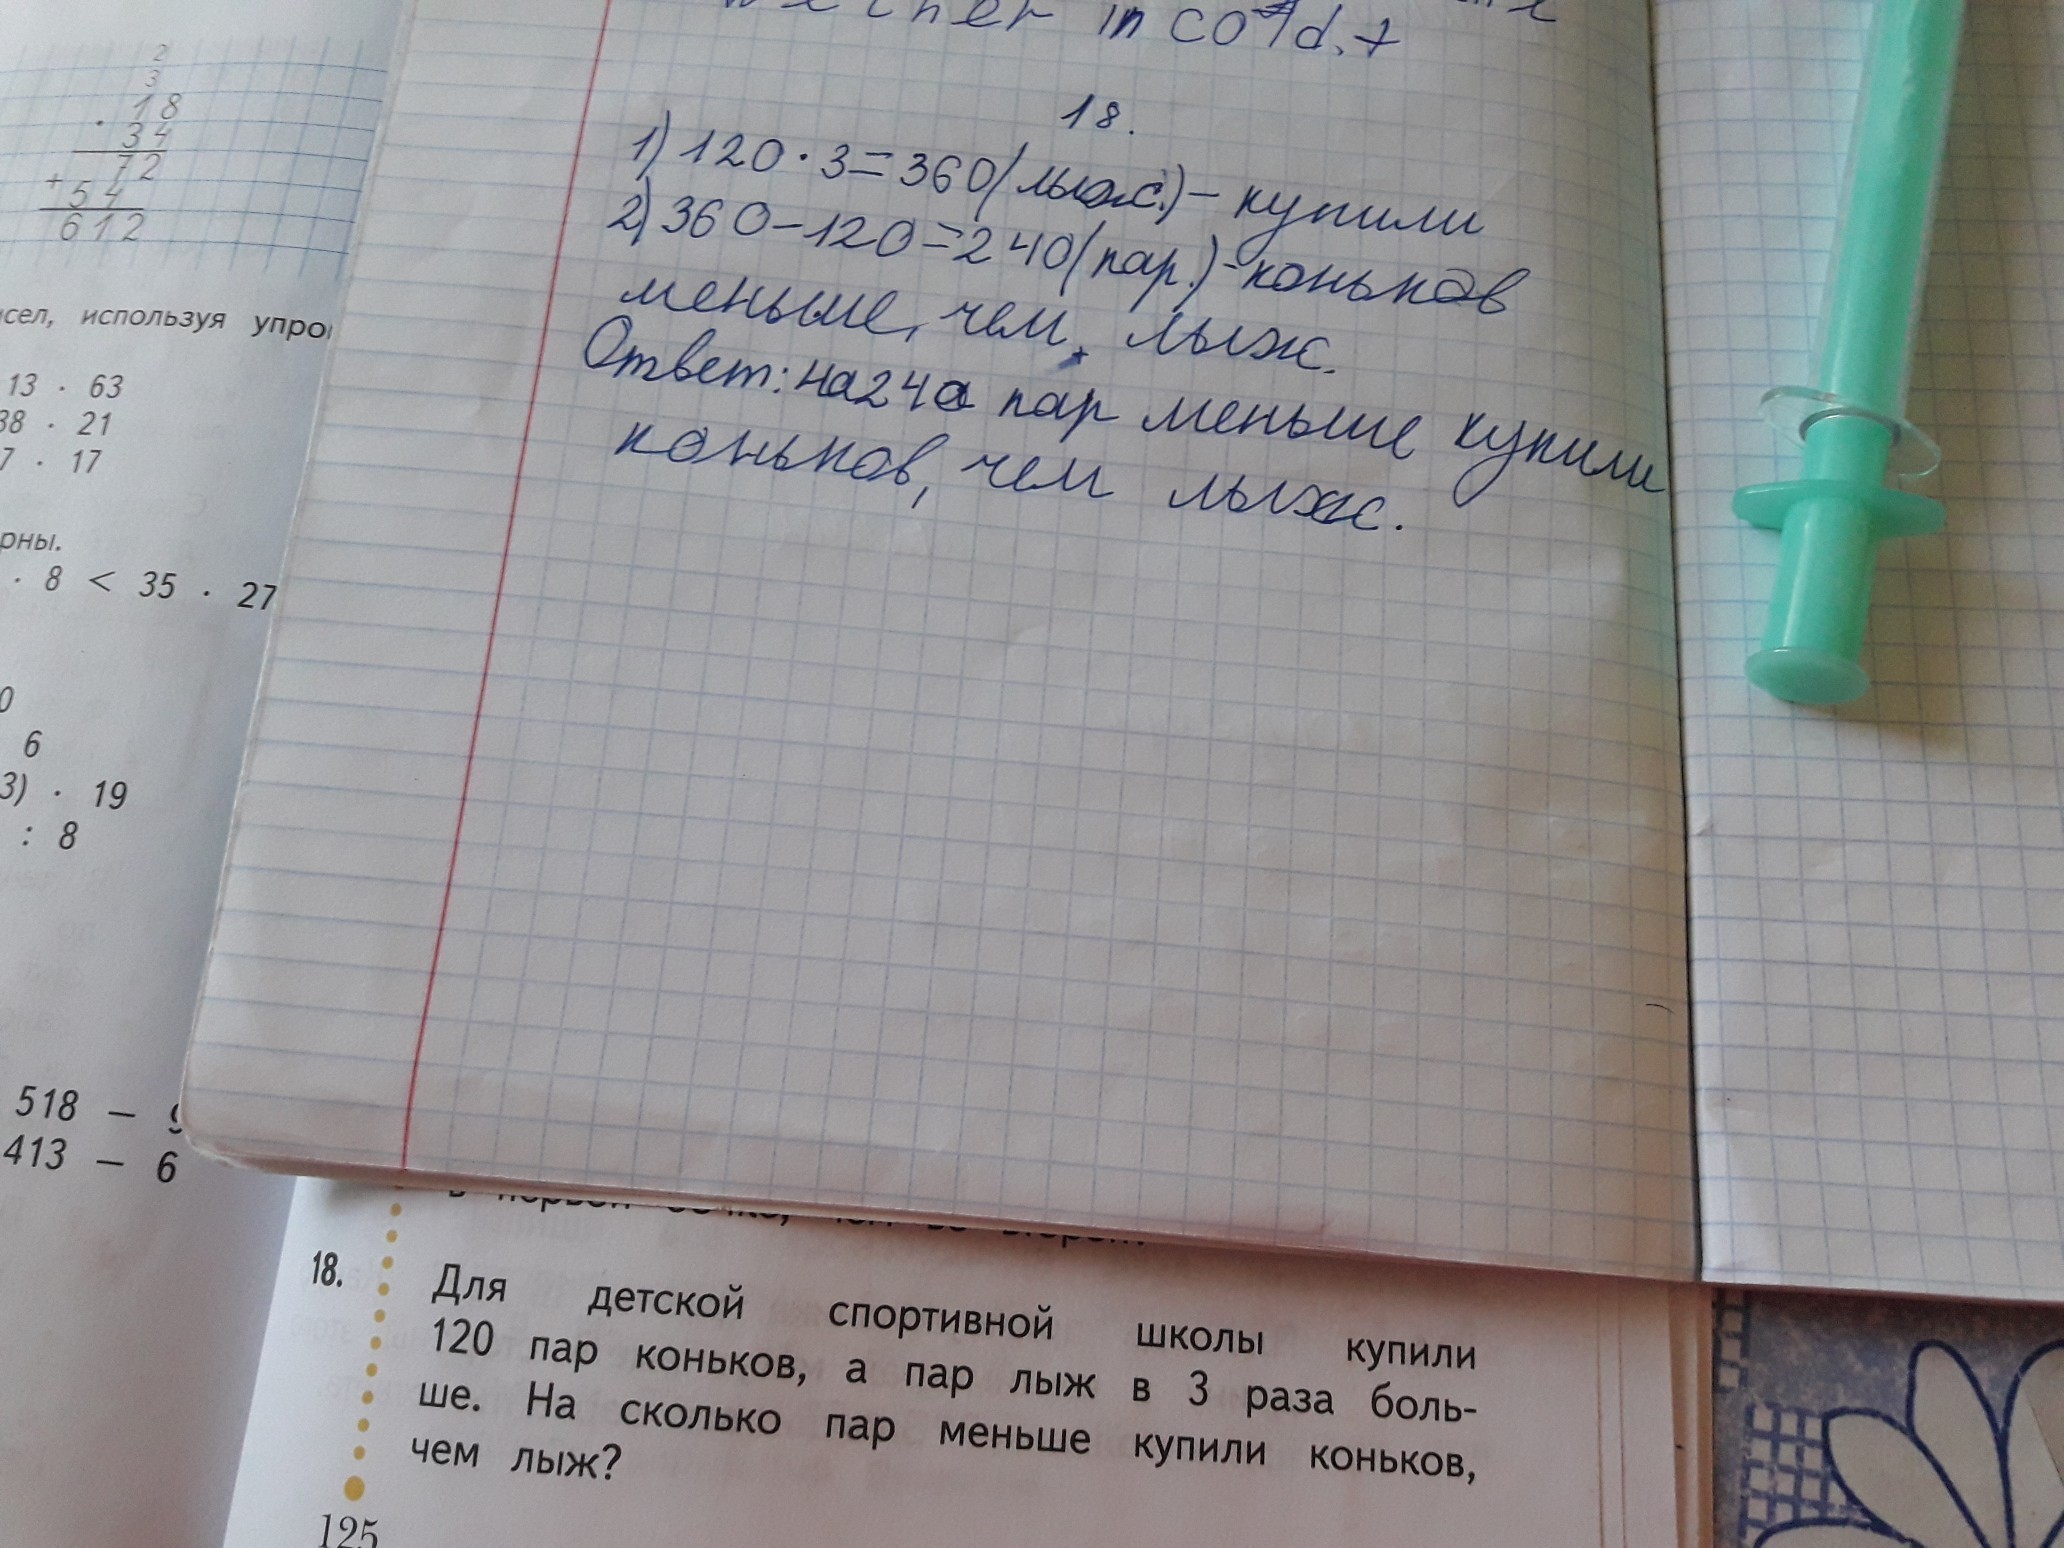 in cold.
2
3
18
· 34
72
+ 54
612
используя
13 · 63
38 · 21
7 · 17
· 8 < 35 · 27
6
3) · 19
: 8
518 –
413 – 6
18.
1) 120 · 3 = 360 (лыж.) – купили
2) 360 – 120 = 240 (пар.) – коньков
меньше, чем лыж.
Ответ: на 240 пар меньше купили
коньков, чем лыж.
18. Для детской спортивной школы купили
120 пар коньков, а пар лыж в 3 раза боль-
ше. На сколько пар меньше купили коньков,
чем лыж?
125